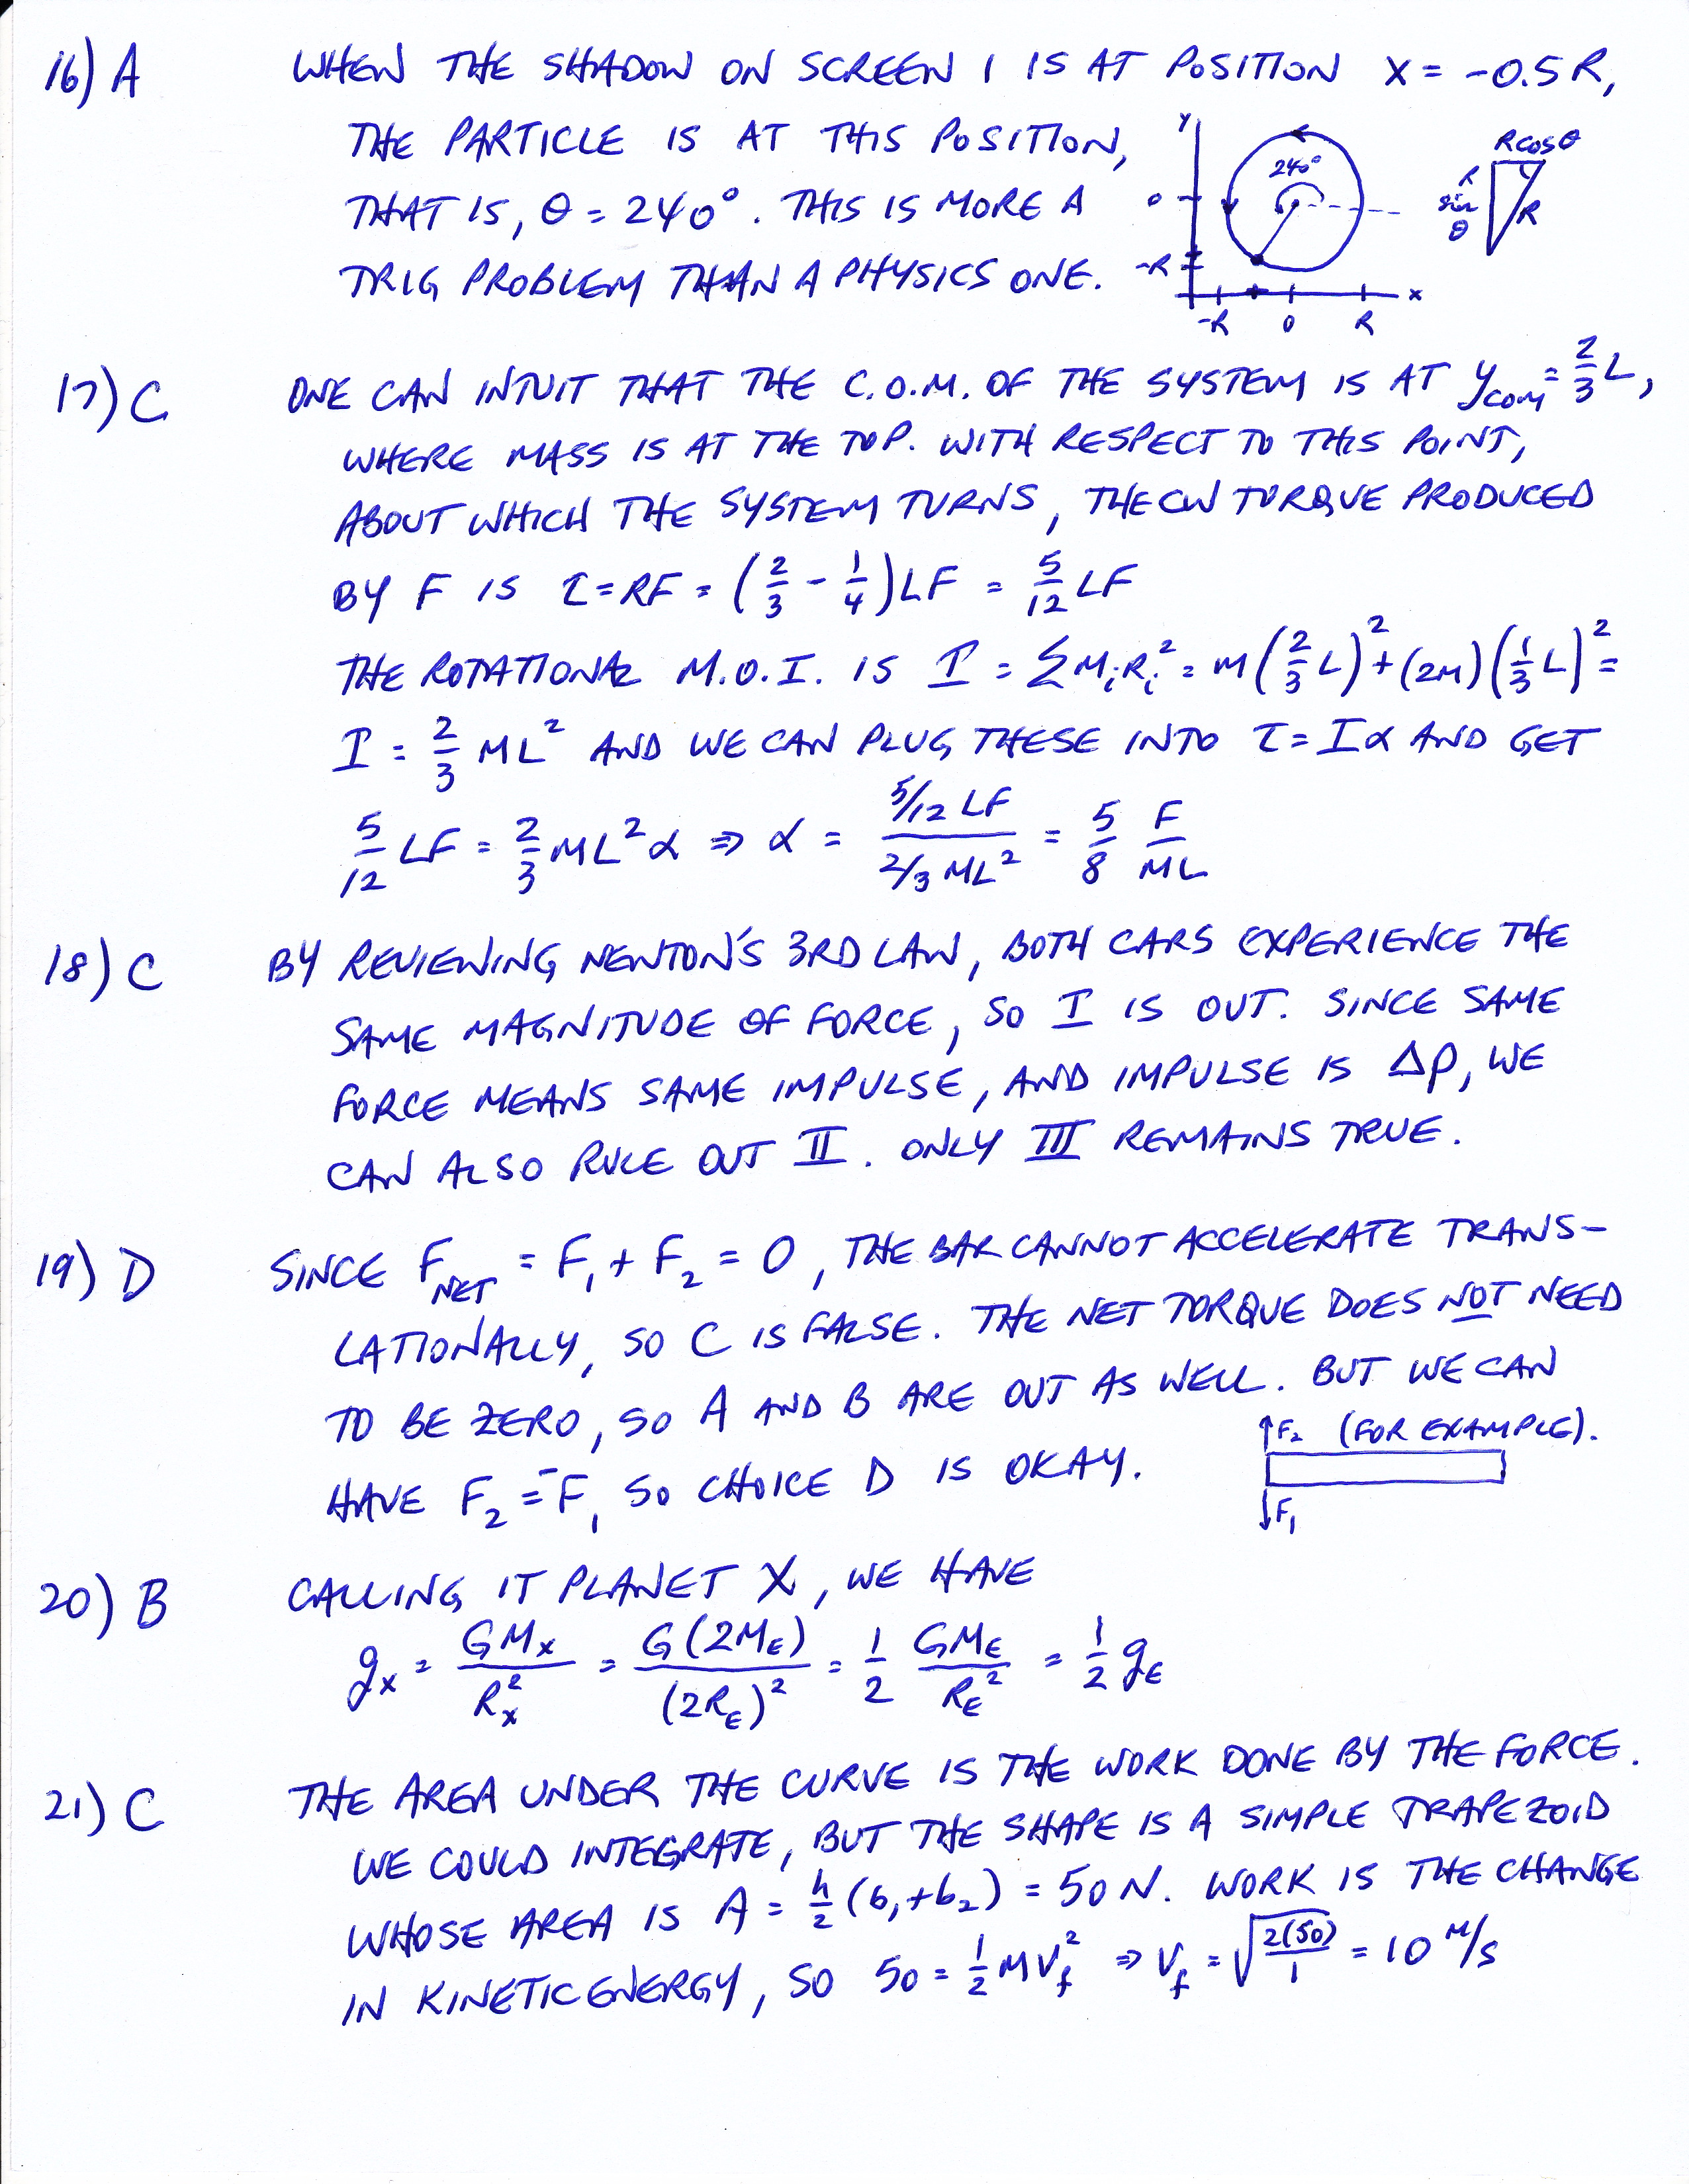 16) A WHEN THE SHADOW ON SCREEN 1 IS AT POSITION X = -0.5R,
THE PARTICLE IS AT THIS POSITION,
THAT IS, θ = 240°. THIS IS MORE A
TRIG PROBLEM THAN A PHYSICS ONE.
y
0
-R
240°
-R 0 R x
R cos θ
R sin θ
R
17) C ONE CAN INTUIT THAT THE C.O.M. OF THE SYSTEM IS AT y_COM = 2/3 L,
WHERE MASS IS AT THE TOP. WITH RESPECT TO THIS POINT,
ABOUT WHICH THE SYSTEM TURNS, THE CW TORQUE PRODUCED
BY F IS τ = RF = (2/3 - 1/4)LF = 5/12 LF
THE ROTATIONAL M.O.I. IS I = ΣM_iR_i² = M(2/3 L)² + (2M)(1/3 L)² =
I = 2/3 ML² AND WE CAN PLUG THESE INTO τ = Iα AND GET
5/12 LF = 2/3 ML²α ⇒ α = (5/12 LF)/(2/3 ML²) = 5/8 F/ML
18) C BY REVIEWING NEWTON'S 3RD LAW, BOTH CARS EXPERIENCE THE
SAME MAGNITUDE OF FORCE, SO I IS OUT. SINCE SAME
FORCE MEANS SAME IMPULSE, AND IMPULSE IS Δp, WE
CAN ALSO RULE OUT II. ONLY III REMAINS TRUE.
19) D SINCE F_NET = F₁ + F₂ = 0, THE BAR CANNOT ACCELERATE TRANS-
LATIONALLY, SO C IS FALSE. THE NET TORQUE DOES NOT NEED
TO BE ZERO, SO A AND B ARE OUT AS WELL. BUT WE CAN
HAVE F₂ = -F₁ SO CHOICE D IS OKAY.
F₂ (FOR EXAMPLE).
F₁
20) B CALLING IT PLANET X, WE HAVE
g_x = GM_x/R_x² = G(2M_E)/(2R_E)² = 1/2 GM_E/R_E² = 1/2 g_E
21) C THE AREA UNDER THE CURVE IS THE WORK DONE BY THE FORCE.
WE COULD INTEGRATE, BUT THE SHAPE IS A SIMPLE TRAPEZOID
WHOSE AREA IS A = h/2 (b₁+b₂) = 50 N. WORK IS THE CHANGE
IN KINETIC ENERGY, SO 50 = 1/2 M v_f² ⇒ v_f = √(2(50)/1) = 10 M/S